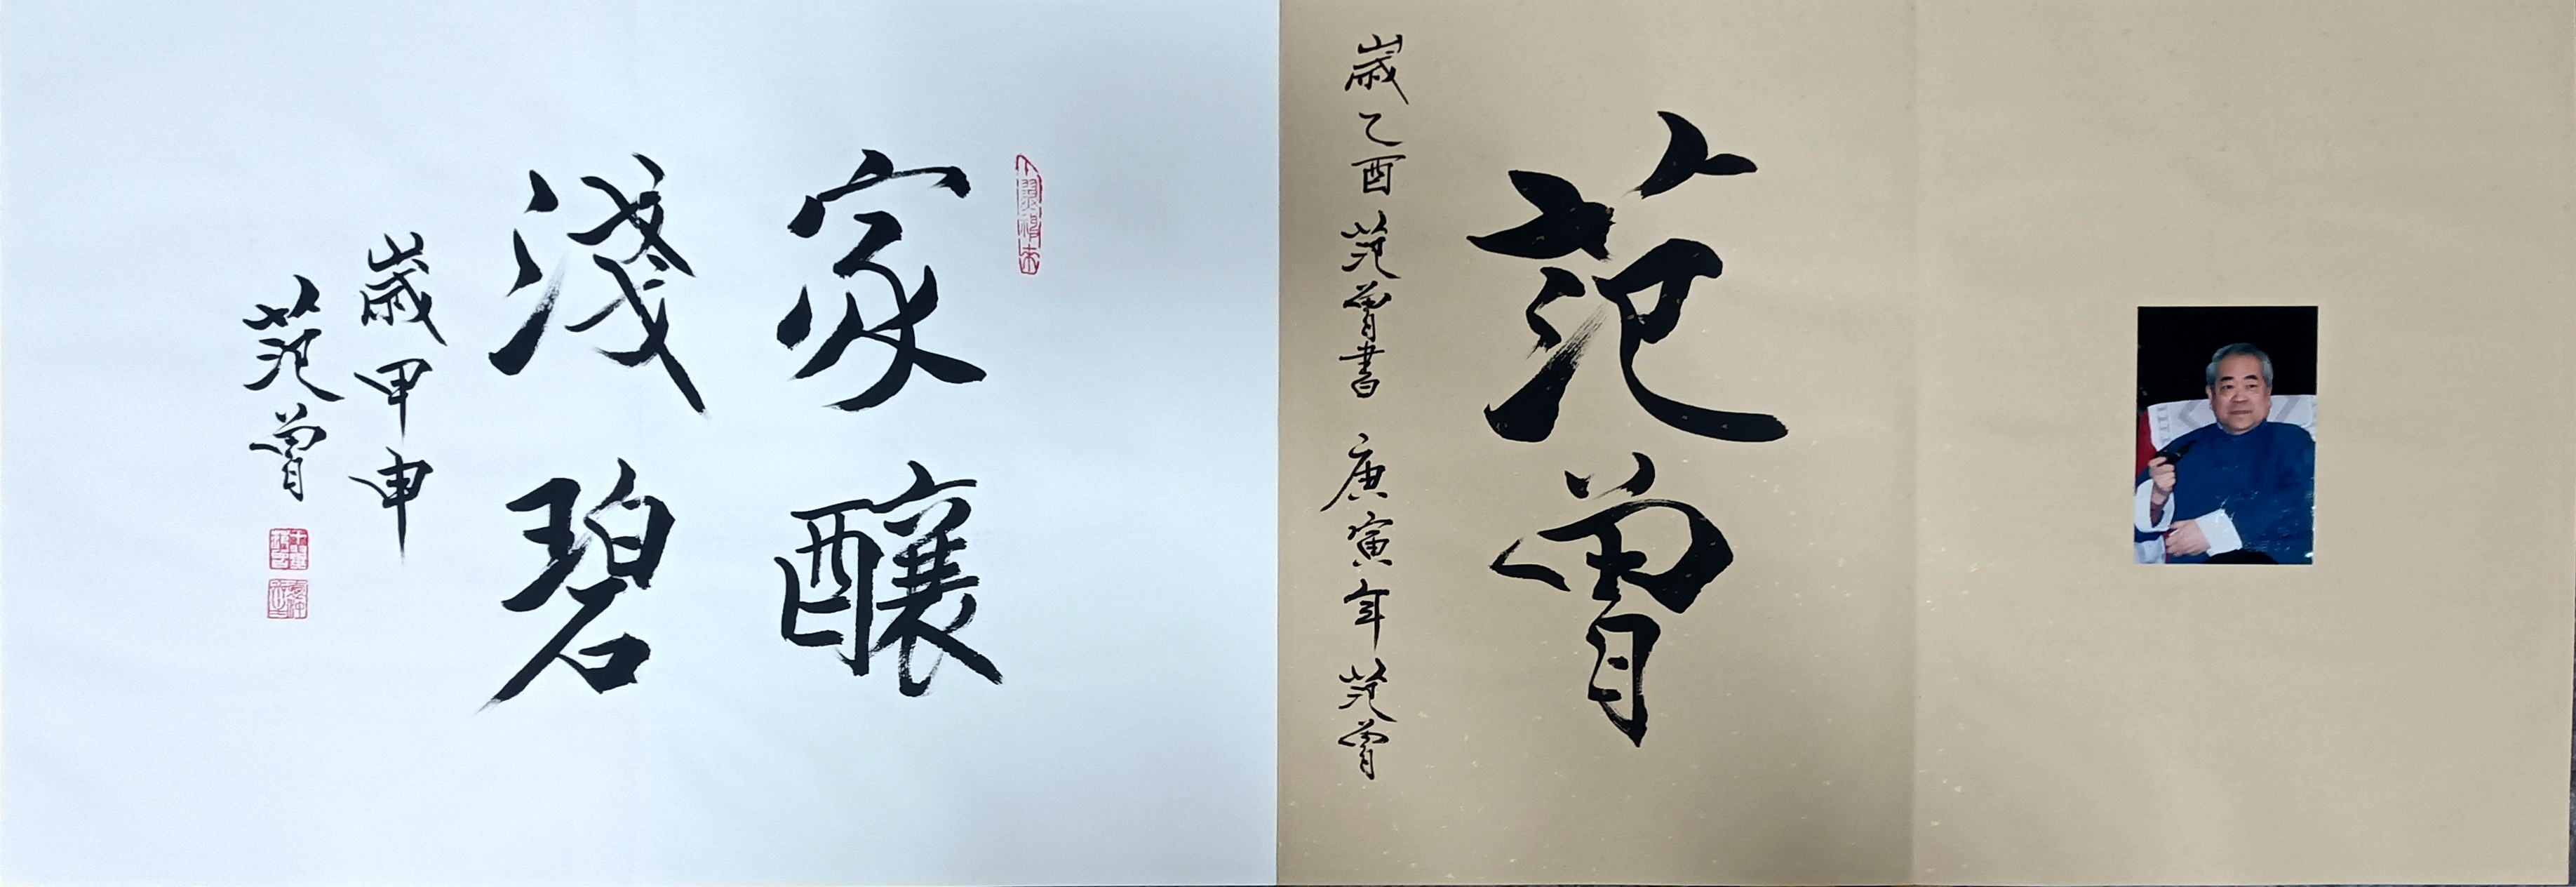 范曾
歲乙酉范曾書 庚寅年范曾
家釀
淺碧
歲甲申
范曾